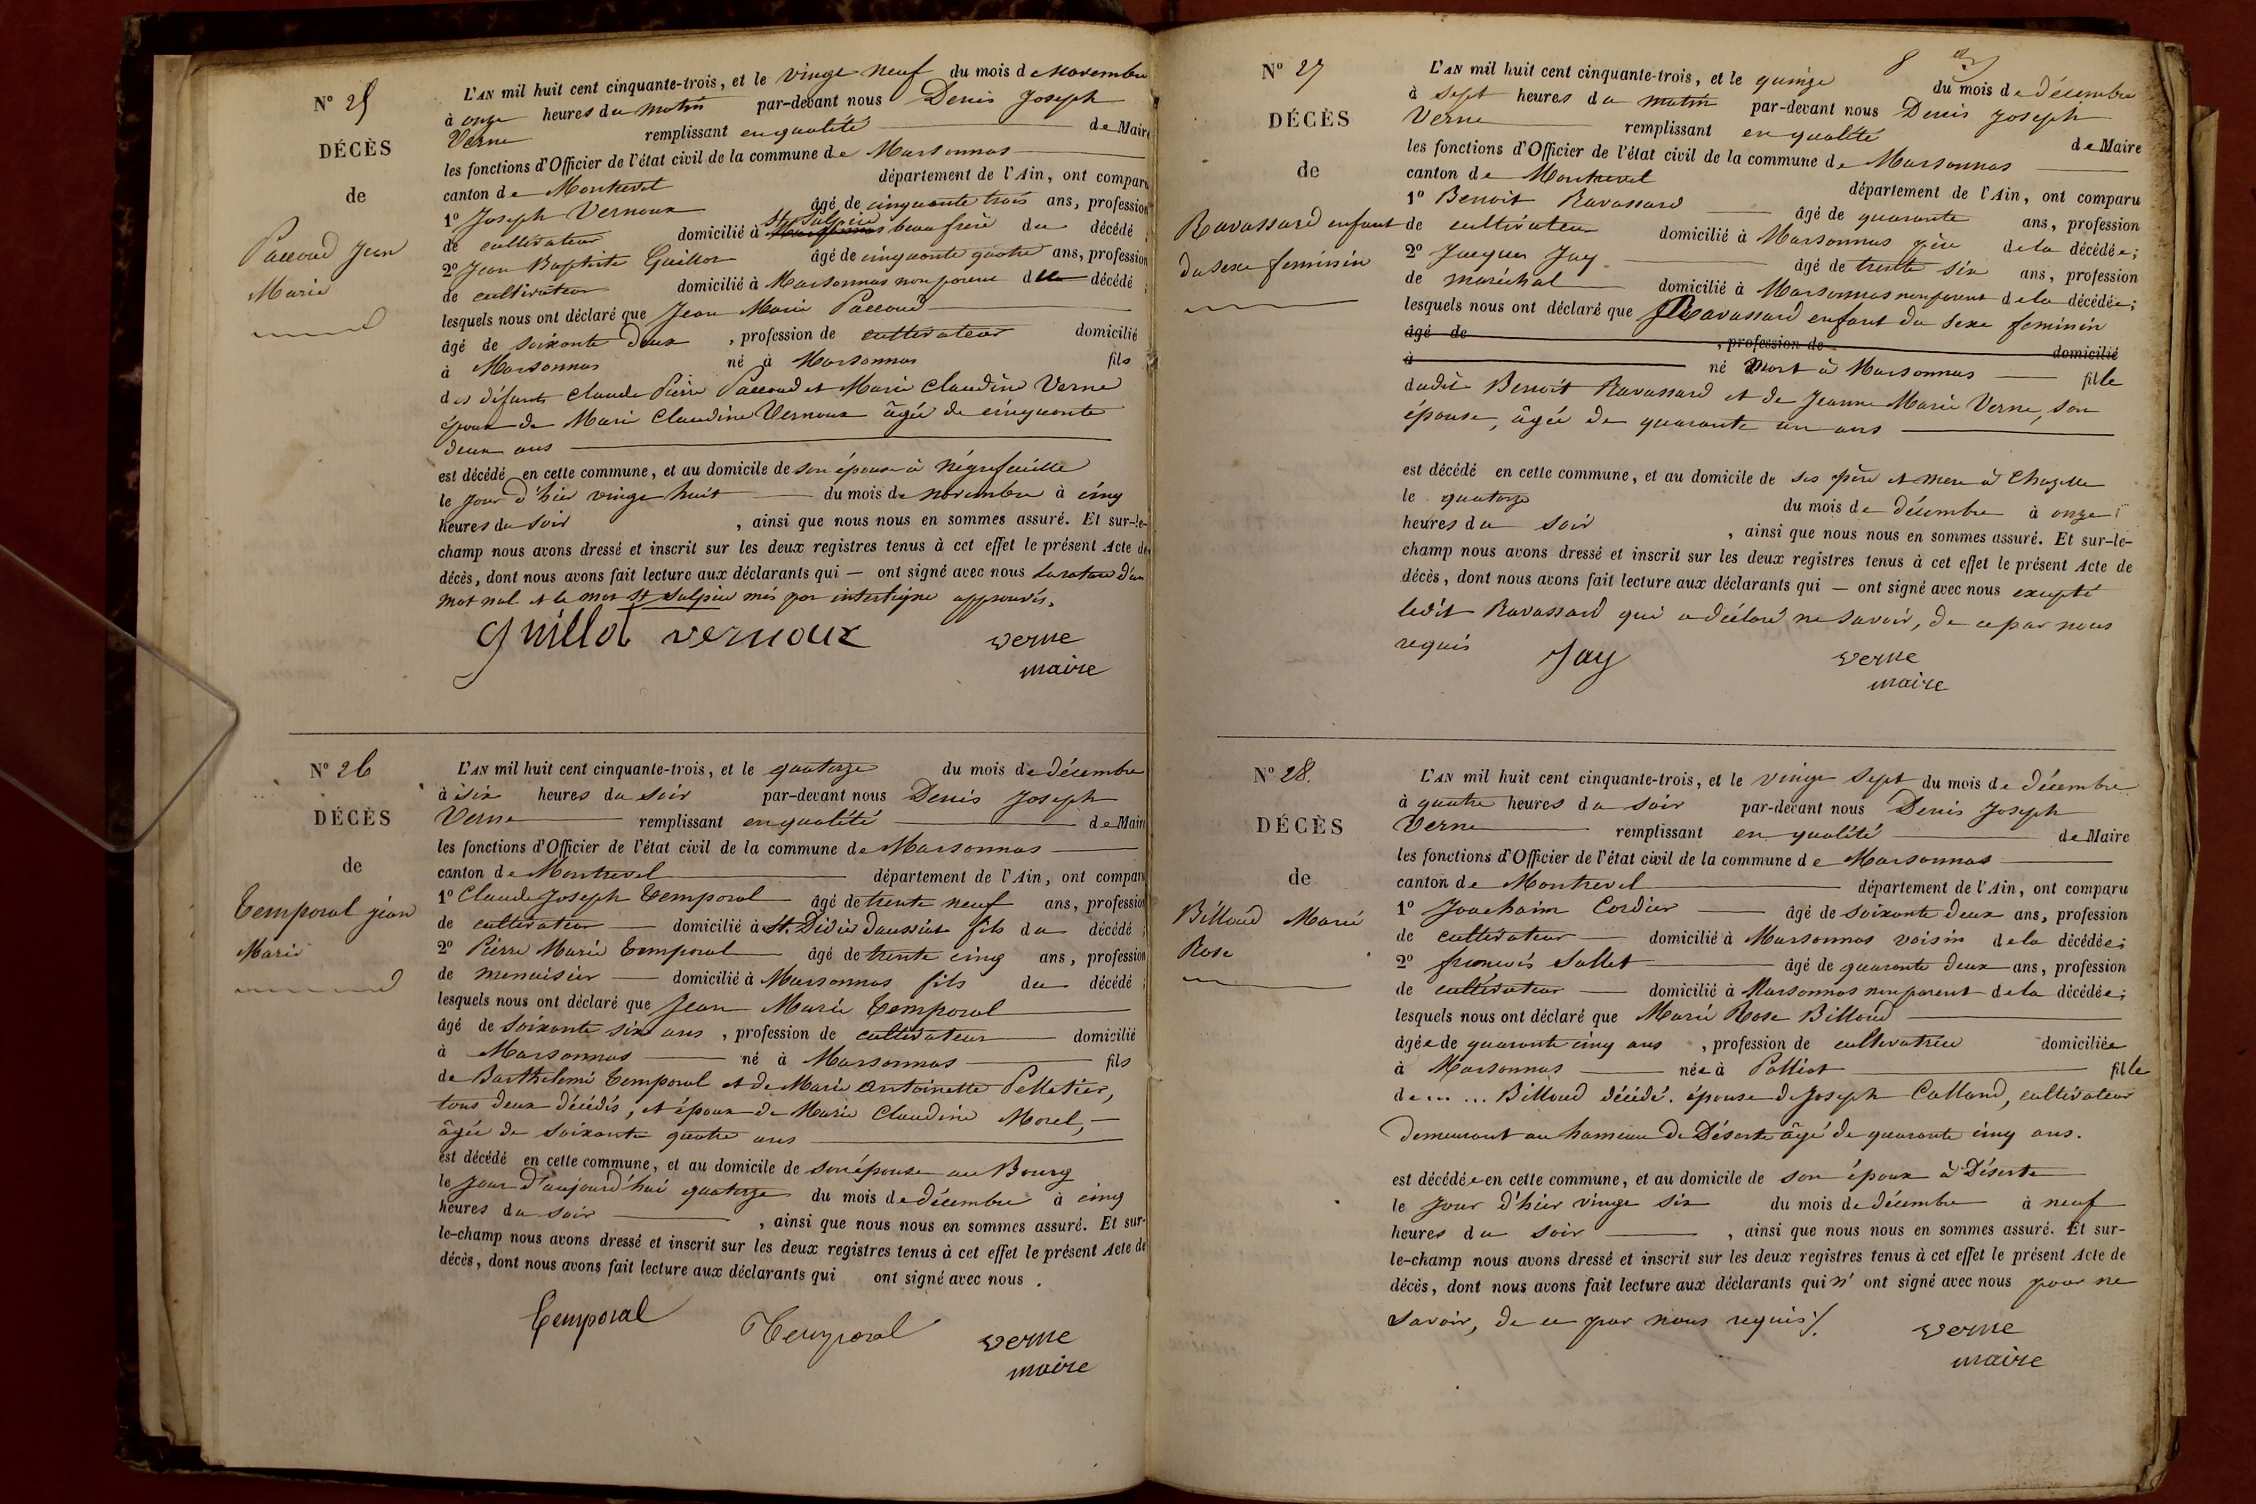 N° 25
DÉCÈS
de
Paccoud Jean
Marie
L'AN mil huit cent cinquante-trois, et le vingt neuf du mois de Novembre
à onze heures du matin par-devant nous Denis Joseph
Verne remplissant en qualité de Maire
les fonctions d'Officier de l'état civil de la commune de Marsonnas
canton de Montrevel département de l'Ain, ont comparu
1° Joseph Vernoux âgé de cinquante trois ans, profession
St Sulpice
de cultivateur domicilié à Marsonnas beau frère du décédé ;
2° Jean Baptiste Guillot âgé de cinquante quatre ans, profession
de cultivateur domicilié à Marsonnas non parent du décédé ;
lesquels nous ont déclaré que Jean Marie Paccoud
âgé de soixante deux , profession de cultivateur domicilié
à Marsonnas né à Marsonnas fils
des défunts Claude Pierre Paccoud et Marie Claudine Verne
époux de Marie Claudine Vernoux âgée de cinquante
deux ans
est décédé en cette commune, et au domicile de son épouse à Négrefeuille
le jour d'hier vingt huit du mois de novembre à cinq
heures du soir , ainsi que nous nous en sommes assuré. Et sur-le-
champ nous avons dressé et inscrit sur les deux registres tenus à cet effet le présent Acte de
décès, dont nous avons fait lecture aux déclarants qui — ont signé avec nous la rature d'un
mot nul et le mot St Sulpice mis par interligne approuvés.
Guillot vernoux verne
maire
N° 26
DÉCÈS
de
Temporal jean
Marie
L'AN mil huit cent cinquante-trois, et le quatorze du mois de décembre
à six heures du soir par-devant nous Denis Joseph
Verne remplissant en qualité de Maire
les fonctions d'Officier de l'état civil de la commune de Marsonnas
canton de Montrevel département de l'Ain, ont comparu
1° Claude Joseph Temporal âgé de trente neuf ans, profession
de cultivateur domicilié à St. Didier d'aussiat fils du décédé ;
2° Pierre Marie Temporal âgé de trente cinq ans, profession
de menuisier domicilié à Marsonnas fils du décédé ;
lesquels nous ont déclaré que Jean Marie Temporal
âgé de soixante six ans , profession de cultivateur domicilié
à Marsonnas né à Marsonnas fils
de Barthelemi Temporal et de Marie antoinette Pelletier,
tous deux décédés, et époux de Marie Claudine Morel,
âgée de soixante quatre ans
est décédé en cette commune, et au domicile de son épouse au Bourg
le jour d'aujourd'hui quatorze du mois de décembre à cinq
heures du soir , ainsi que nous nous en sommes assuré. Et sur-
le-champ nous avons dressé et inscrit sur les deux registres tenus à cet effet le présent Acte de
décès, dont nous avons fait lecture aux déclarants qui ont signé avec nous .
Temporal Temporal verne
maire
8
N° 27
DÉCÈS
de
Ravassard enfant
du sexe feminin
L'AN mil huit cent cinquante-trois, et le quinze du mois de décembre
à sept heures du matin par-devant nous Denis Joseph
Verne remplissant en qualité de Maire
les fonctions d'Officier de l'état civil de la commune de Marsonnas
canton de Montrevel département de l'Ain, ont comparu
1° Benoit Ravassard âgé de quarante ans, profession
de cultivateur domicilié à Marsonnas père de la décédée ;
2° Jacques Jay âgé de trente six ans, profession
de maréchal domicilié à Marsonnas non parent de la décédée ;
lesquels nous ont déclaré que Ravassard enfant du sexe feminin
âgé de , profession de domicilié
à né mort à Marsonnas fille
dudit Benoit Ravassard et de Jeanne Marie Verne, son
épouse, âgée de quarante un ans
est décédé en cette commune, et au domicile de ses père et mere à Chazelle
le quatorze du mois de décembre à onze
heures du soir , ainsi que nous nous en sommes assuré. Et sur-le-
champ nous avons dressé et inscrit sur les deux registres tenus à cet effet le présent Acte de
décès, dont nous avons fait lecture aux déclarants qui — ont signé avec nous excepté
ledit Ravassard qui a déclaré ne savoir, de ce par nous
requis Jay verne
maire
N° 28.
DÉCÈS
de
Billoud Marie
Rose
L'AN mil huit cent cinquante-trois, et le vingt sept du mois de décembre
à quatre heures du soir par-devant nous Denis Joseph
Verne remplissant en qualité de Maire
les fonctions d'Officier de l'état civil de la commune de Marsonnas
canton de Montrevel département de l'Ain, ont comparu
1° Joachaim Cordier âgé de soixante deux ans, profession
de cultivateur domicilié à Marsonnas voisin de la décédée ;
2° francois Sallet âgé de quarante deux ans, profession
de cultivateur domicilié à Marsonnas non parent de la décédée ;
lesquels nous ont déclaré que Marie Rose Billoud
âgée de quarante cinq ans , profession de cultivatrice domiciliée
à Marsonnas née à Polliat fille
de ... ... Billoud décédé. épouse de Joseph Calland, cultivateur
demeurant au hameau de Déserte âgé de quarante cinq ans.
est décédée en cette commune, et au domicile de son époux à Déserte
le jour d'hier vingt six du mois de décembre à neuf
heures du soir , ainsi que nous nous en sommes assuré. Et sur-
le-champ nous avons dressé et inscrit sur les deux registres tenus à cet effet le présent Acte de
décès, dont nous avons fait lecture aux déclarants qui n'ont signé avec nous pour ne
savoir, de ce par nous requis /.
verne
maire